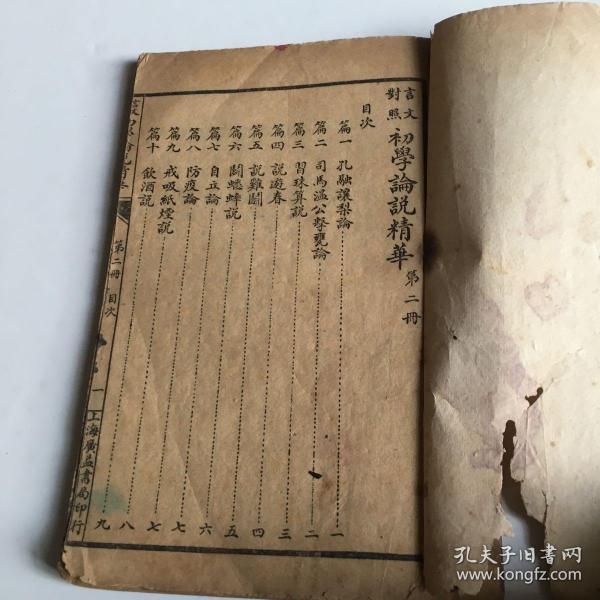 言文對照 初學論說精華 第二冊
目次
篇一 孔融讓梨論 一
篇二 司馬溫公擊甕論 二
篇三 習珠算說 三
篇四 說遊春 四
篇五 說雞鬭 四
篇六 鬭蟋蟀說 五
篇七 自立論 六
篇八 防疫論 七
篇九 戒吸紙煙說 七
篇十 飲酒說 八
九
第二冊 目次
一
上海廣益書局印行
孔夫子旧书网
www.kongfz.com